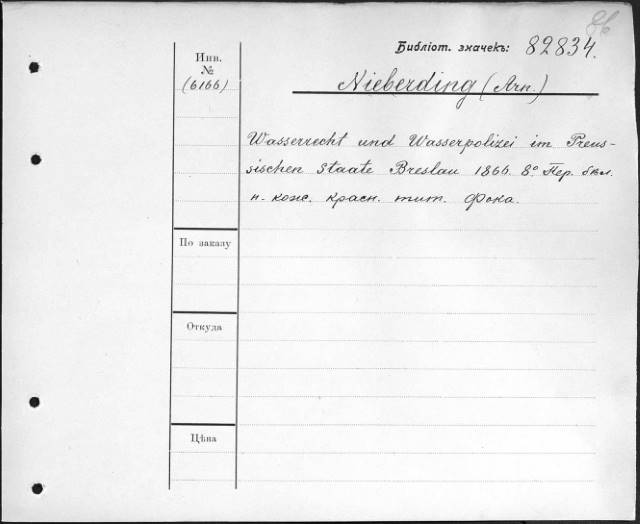 86
Библіот. значекъ: 82834.
Инв.
№
(6166)
Nieberding (Arn.)
Wasserrecht und Wasserpolizei im Preus-
sischen Staate Breslau 1866. 8º. Пер. бѣл.
н. кож. красн. тит. Фока.
По заказу
Откуда
Цѣна